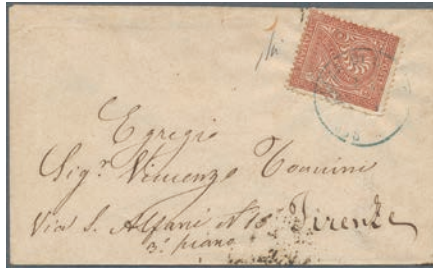 Egregio
Sigr. Vincenzo
Via S. Alfani N 18 Firenze
3° piano